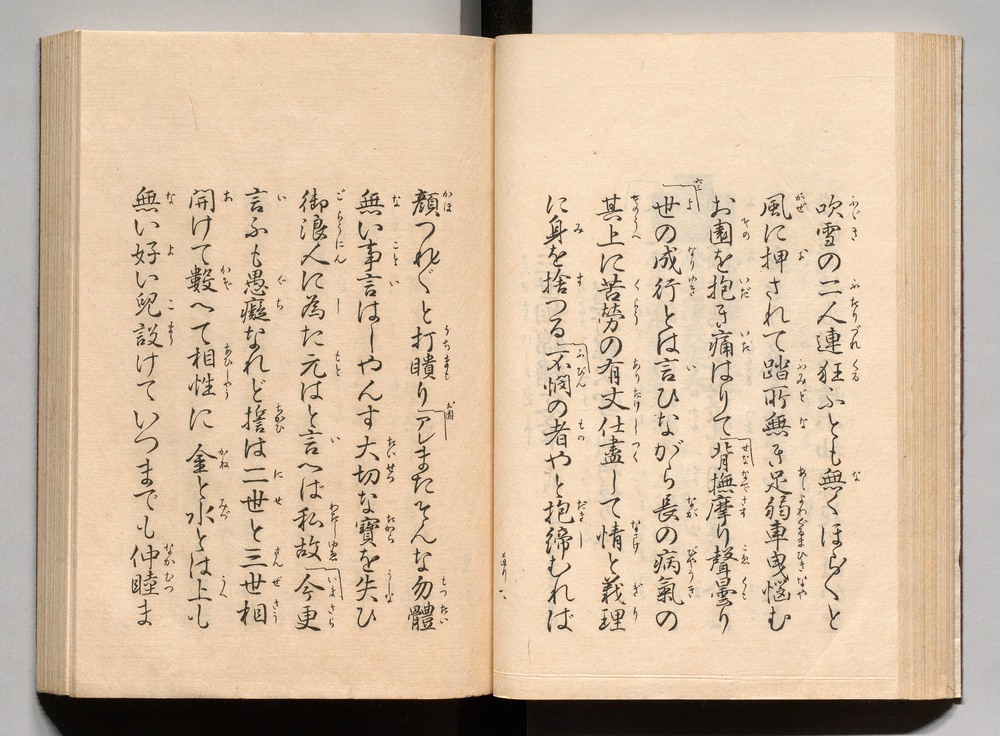 吹雪の二人連狂ふとも無くほら〲と
風に押されて踏所無き足弱車曳悩む
お園を抱き痛はりて背撫摩り聲曇り
世の成行とは言ひながら長の病氣の
其上に苦勞の有丈仕盡して情と義理
に身を捨つる不憫の者やと抱締むれば
顔つれ〲と打瞶りアレまたそんな勿體
無い事言はしやんす大切な寶を失ひ
御浪人に為た元はと言へば私故今更
言ふも愚癡なれど誓は二世と三世相
開けて數へて相性に金と水とは上も
無い好い兒設けていつまでも仲睦ま